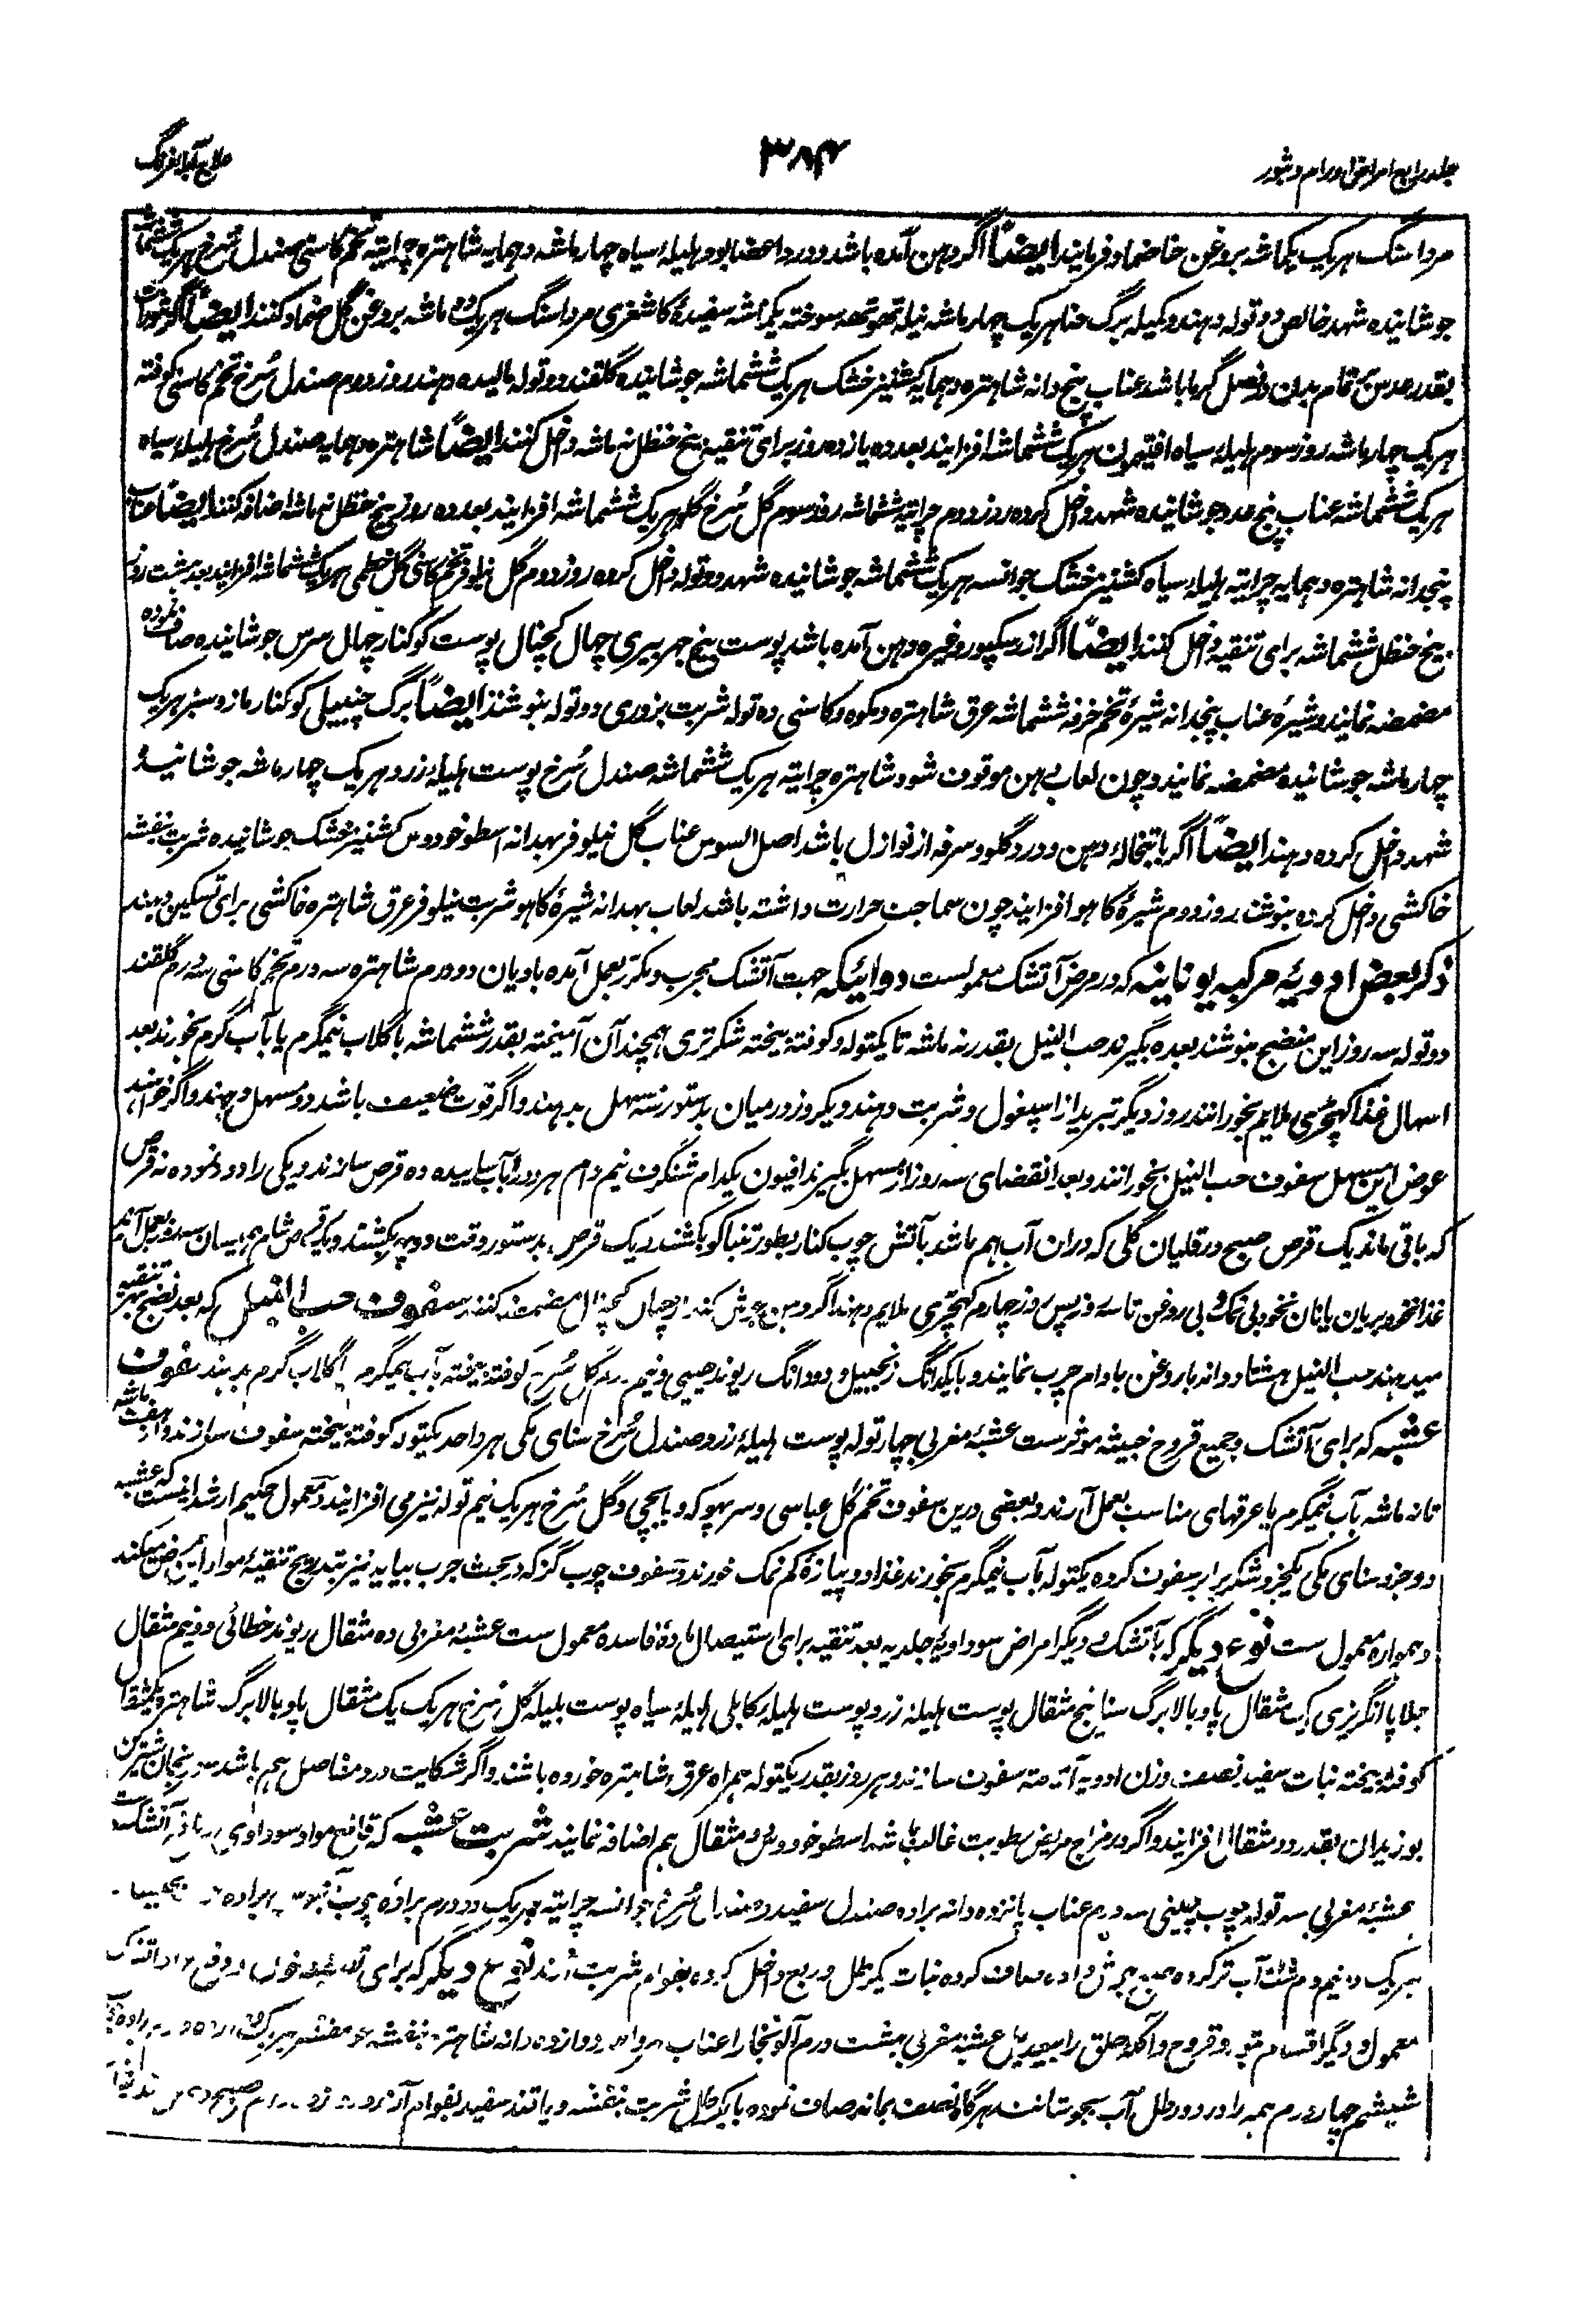 جلد رابع امراض اورام و بثور
۳۸۴
علاج آبله فرنگ
مردا سنگ هریک یکماشه بروغن خا ضماد فرمایند ایضًا اگر دهن آمده باشد و درد اعضا بود هلیله سیاه چهار ماشه دهمایه شاهتره چرایته تخم کاسنی صندل سُرخ هریک ششماشه
جوشانیده شهد خالص دو توله دهند و کمیله برگ حنا هریک چهار ماشه نیله تهوتهه سوخته یکماشه سفیدهٔ کاشغری مردا سنگ هریک ماشه بروغن گل ضماد کنند ایضًا اگر بثورات
بقدر عدس بر تمام بدن و فصل گرما باشد عناب پنج دانه شاهتره دهمایه کشنیز خشک هریک ششماشه جوشانیده گلقند دو توله مالیده دهند روز دوم صندل سُرخ تخم کاسنی کوفته
هریک چهار ماشه روز سوم هلیله سیاه افتیمون هریک ششماشه افزایند بعد ده یازده روز برای تنقیه بیخ حنظل نه ماشه داخل کنند ایضًا شاهتره دهمایه صندل سُرخ هلیله سیاه
هریک ششماشه عناب پنج عدد جوشانیده شهد داخل کرده روز دوم چرایته ششماشه روز سوم گل سُرخ گلو هریک ششماشه افزایند بعد ده روز بیخ حنظل نه ماشه اضافه کنند ایضًا عناب
پنجدانه شاهتره دهمایه چرایته هلیله سیاه کشنیز خشک جوانسه هریک ششماشه جوشانیده شهد دو توله داخل کرده روز دوم گل نیلوفر تخم کاسنی گل خطمی هریک ششماشه افزایند بعد هشت روز
بیخ حنظل ششماشه برای تنقیه داخل کنند ایضًا اگر از رسکپور وغیره دهن آمده باشد پوست بیخ جهر بیری چهال کچنال پوست کوکنار چهال سرس جوشانیده صاف نموده
مضمضه نمایند و شیرهٔ عناب پنجدانه شیرهٔ تخم خرفه ششماشه عرق شاهتره و مکوه و کاسنی ده توله شربت بزوری دو توله بنوشند ایضًا برگ چنبیلی کوکنار مازو سبز هریک
چهار ماشه جوشانیده مضمضه نمایند و چون لعاب دهن موقوف شود شاهتره چرایته هریک ششماشه صندل سُرخ پوست هلیله زرد هریک چهار ماشه جوشانیده
شهد داخل کرده دهند ایضًا اگر با تبخالهٔ دهن و درد گلو و سرفه از نوازل باشد اصل السوس عناب گل نیلوفر بهدانه اسطوخودوس کشنیز خشک جوشانیده شربت بنفشه
خاکشی داخل کرده بنوشند روز دوم شیرهٔ کاهو افزایند چون سماجت حرارت داشته باشد لعاب بهدانه شیرهٔ کاهو شربت نیلوفر عرق شاهتره خاکشی برای تسکین دهند
ذکر بعض ادویهٔ مرکبه یونانیه که در مرض آتشک معمولست دوائیکه جهت آتشک مجرب و مکرر بعمل آمده بادیان دو درم شاهتره سه درم تخم کاسنی سه درم گلقند
دو توله سه روز این منضج بنوشند بعده بگیرند حب النیل بقدر نه ماشه تا یکتوله و کوفته بیخته شکر تری همچند آن آمیخته بقدر ششماشه با گلاب نیمگرم یا بآب گرم بخورند بعد
اسهال غذا کهچڑی ملایم بخورانند روز دیگر تبرید از اسپغول و شربت دهند و یکروز درمیان بدستور سه مسهل بدهند و اگر قوت ضعیف باشد دو مسهل دهند و اگر خواهند
عوض این مسهل سفوف حب النیل بخورانند و بعد انقضای سه روز از مسهل بگیرند افیون یکدام شنگرف نیم دام هر دو را بآب ساییده ده قرص سازند و یکی را دور نموده نه قرص
که باقی ماند یک قرص صبح در قلیان گلی که دران آب هم باشد بآتش چوب کنار بطور تنباکو بکشند و یک قرص بدستور وقت دوپهر بکشند و یک قرص شام همین سان سه روز بعمل آرند
غذا نخود بریان یا نان نخود بی نمک و بی روغن تا سه روز پس روز چهارم کهچڑی ملایم دهند اگر دهن جوش کند از چهال کچنال مضمضه کنند سفوف حب النیل که بعد نضج بهر تنقیه
میدهند حب النیل هشتاد دانه بروغن بادام چرب نمایند و با یکدانگ زنجبیل و دو دانگ ریوند چینی و نیم درم گل سُرخ کوفته بیخته بآب نیمگرم یا گلاب گرم بدهند سفوف
عشبه که برای آتشک و جمیع قروح خبیثه موثرست عشبهٔ مغربی چهار توله پوست هلیلهٔ زرد صندل سُرخ سنای مکی هر واحد یکتوله کوفته بیخته سفوف سازند و از هفت ماشه
تا نه ماشه بآب نیمگرم یا عرقهای مناسب بعمل آرند و بعضی درین سفوف تخم گل عباسی و سرپهوکه و بابچی و گل سُرخ هریک نیم توله نیز می افزایند و معمول حکیم ارشد اینست که عشبه
دو جزو سنای مکی یکجزو شکر برابر سفوف کرده یکتوله بآب نیمگرم بخورند غذا دو پیازهٔ کم نمک خورند و سفوف چوب گز که در بحث جرب بیاید نیز بتدریج تنقیهٔ مواد این مرض میکند
و همواره معمول ست نوع دیگر که بآتشک و دیگر امراض سوداویهٔ جلدیه بعد تنقیه برای استیصال مادهٔ فاسده معمول ست عشبهٔ مغربی ده مثقال ریوند خطائی دو نیم مثقال
جلاپا انگریزی یک مثقال پاو بالا برگ سنا پنج مثقال پوست هلیلهٔ زرد پوست هلیله کابلی هلیلهٔ سیاه پوست بلیله گل سُرخ هریک یک مثقال پاو بالا برگ شاهتره یکمثقال
کوفته بیخته نبات سفید نصف وزن ادویه آمیخته سفوف سازند و هر روز بقدر یکتوله همراه عرق شاهتره خورده باشند و اگر شکایت درد مفاصل هم باشد سورنجان شیرین
بوزیدان بقدر دو مثقال افزایند و اگر در مزاج مریض رطوبت غالب باشد اسطوخودوس دو مثقال هم اضافه نمایند شربت عشبه که قامع مواد سوداوی آتشک ست
عشبهٔ مغربی سه توله چوب چینی سه درم عناب پانزده دانه براده صندل سفید صندل سُرخ جوانسه چرایته هریک دو درم برادهٔ چوب
هریک دو نیم درم آب تر کرده صبح جوش داده صاف کرده نبات یکرطل و ربع داخل کرده بقوام شربت آرند نوع دیگر که برای تصفیه خون و دفع مواد آتشک
معمول و دیگر اقسام بثور و قروح و آکله حلق را عشبهٔ مغربی هشت درم آلو بخارا عناب هر واحد دوازده دانه شاهتره بنفشه هریک
شیشم چهار درم همه را در دو رطل آب بجوشانند هرگاه نصف بماند صاف نموده با یکرطل شربت بنفشه و یا قند سفید بقوام آرند صبح